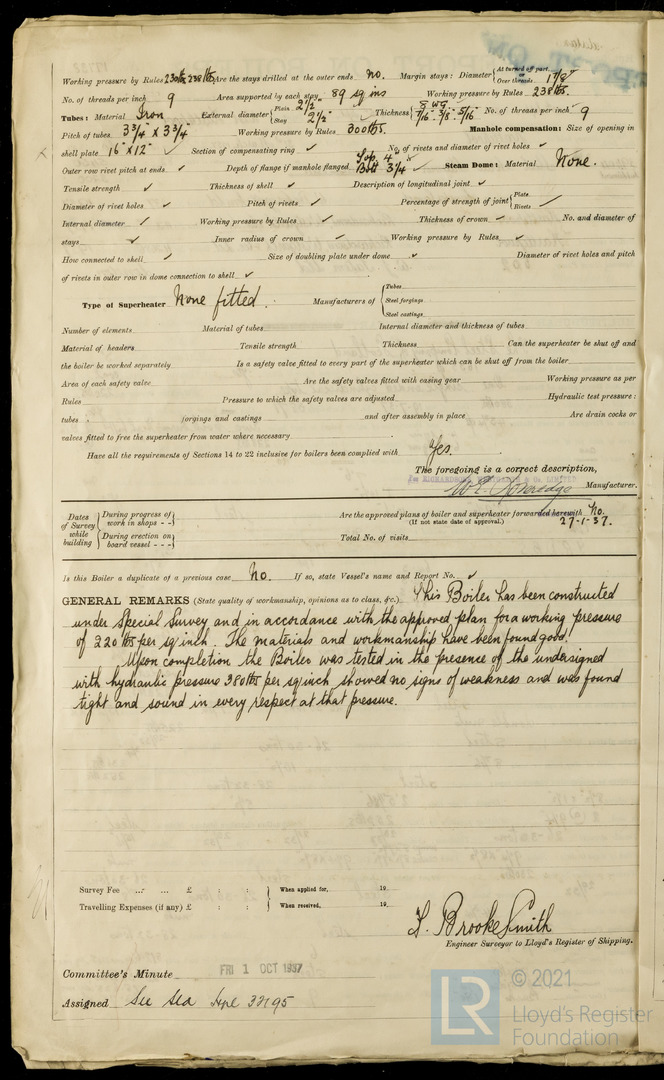 Working pressure by Rules 230 lbs 238 lbs Are the stays drilled at the outer ends No. Margin stays: Diameter { At turned off part, or Over threads 1 7/8"
No. of threads per inch 9 Area supported by each stay 89 sq ins Working pressure by Rules 238 lbs.
Tubes: Material Iron External diameter { Plain 2 1/2" Stay 2 1/2" Thickness { 8 WG 7/16" 3/8" 5/16" No. of threads per inch 9
Pitch of tubes 3 3/4" x 3 3/4" Working pressure by Rules 300 lbs. Manhole compensation: Size of opening in
shell plate 16" x 12" Section of compensating ring ✓ No. of rivets and diameter of rivet holes ✓
Outer row rivet pitch at ends ✓ Depth of flange if manhole flanged Top 4" Bott 3 1/4" Steam Dome: Material None.
Tensile strength ✓ Thickness of shell ✓ Description of longitudinal joint ✓
Diameter of rivet holes ✓ Pitch of rivets ✓ Percentage of strength of joint { Plate Rivets ✓
Internal diameter ✓ Working pressure by Rules ✓ Thickness of crown ✓ No. and diameter of
stays ✓ Inner radius of crown ✓ Working pressure by Rules ✓
How connected to shell ✓ Size of doubling plate under dome ✓ Diameter of rivet holes and pitch
of rivets in outer row in dome connection to shell ✓
Type of Superheater None fitted. Manufacturers of { Tubes Steel forgings Steel castings
Number of elements Material of tubes Internal diameter and thickness of tubes
Material of headers Tensile strength Thickness Can the superheater be shut off and
the boiler be worked separately Is a safety valve fitted to every part of the superheater which can be shut off from the boiler
Area of each safety valve Are the safety valves fitted with easing gear Working pressure as per
Rules Pressure to which the safety valves are adjusted Hydraulic test pressure:
tubes forgings and castings and after assembly in place Are drain cocks or
valves fitted to free the superheater from water where necessary
Have all the requirements of Sections 14 to 22 inclusive for boilers been complied with Yes.
The foregoing is a correct description,
Manufacturer.
Dates of Survey while building { During progress of work in shops - - } Are the approved plans of boiler and superheater forwarded herewith No.
(If not state date of approval.) 27-1-37.
{ During erection on board vessel - - - } Total No. of visits
Is this Boiler a duplicate of a previous case No. If so, state Vessel's name and Report No. ✓
GENERAL REMARKS (State quality of workmanship, opinions as to class, &c.) This Boiler has been constructed
under Special Survey and in accordance with the approved plan for a working pressure
of 220 lbs per sq inch. The materials and workmanship have been found good.
Upon completion the Boiler was tested in the presence of the undersigned
with hydraulic pressure 380 lbs per sq inch showed no signs of weakness and was found
tight and sound in every respect at that pressure.
Survey Fee ... ... £ : : } When applied for, 19
Travelling Expenses (if any) £ : : } When received, 19
L. Brooke Smith
Engineer Surveyor to Lloyd's Register of Shipping.
Committee's Minute FRI 1 OCT 1937
Assigned See Sld 33195
LR © 2021
Lloyd's Register
Foundation